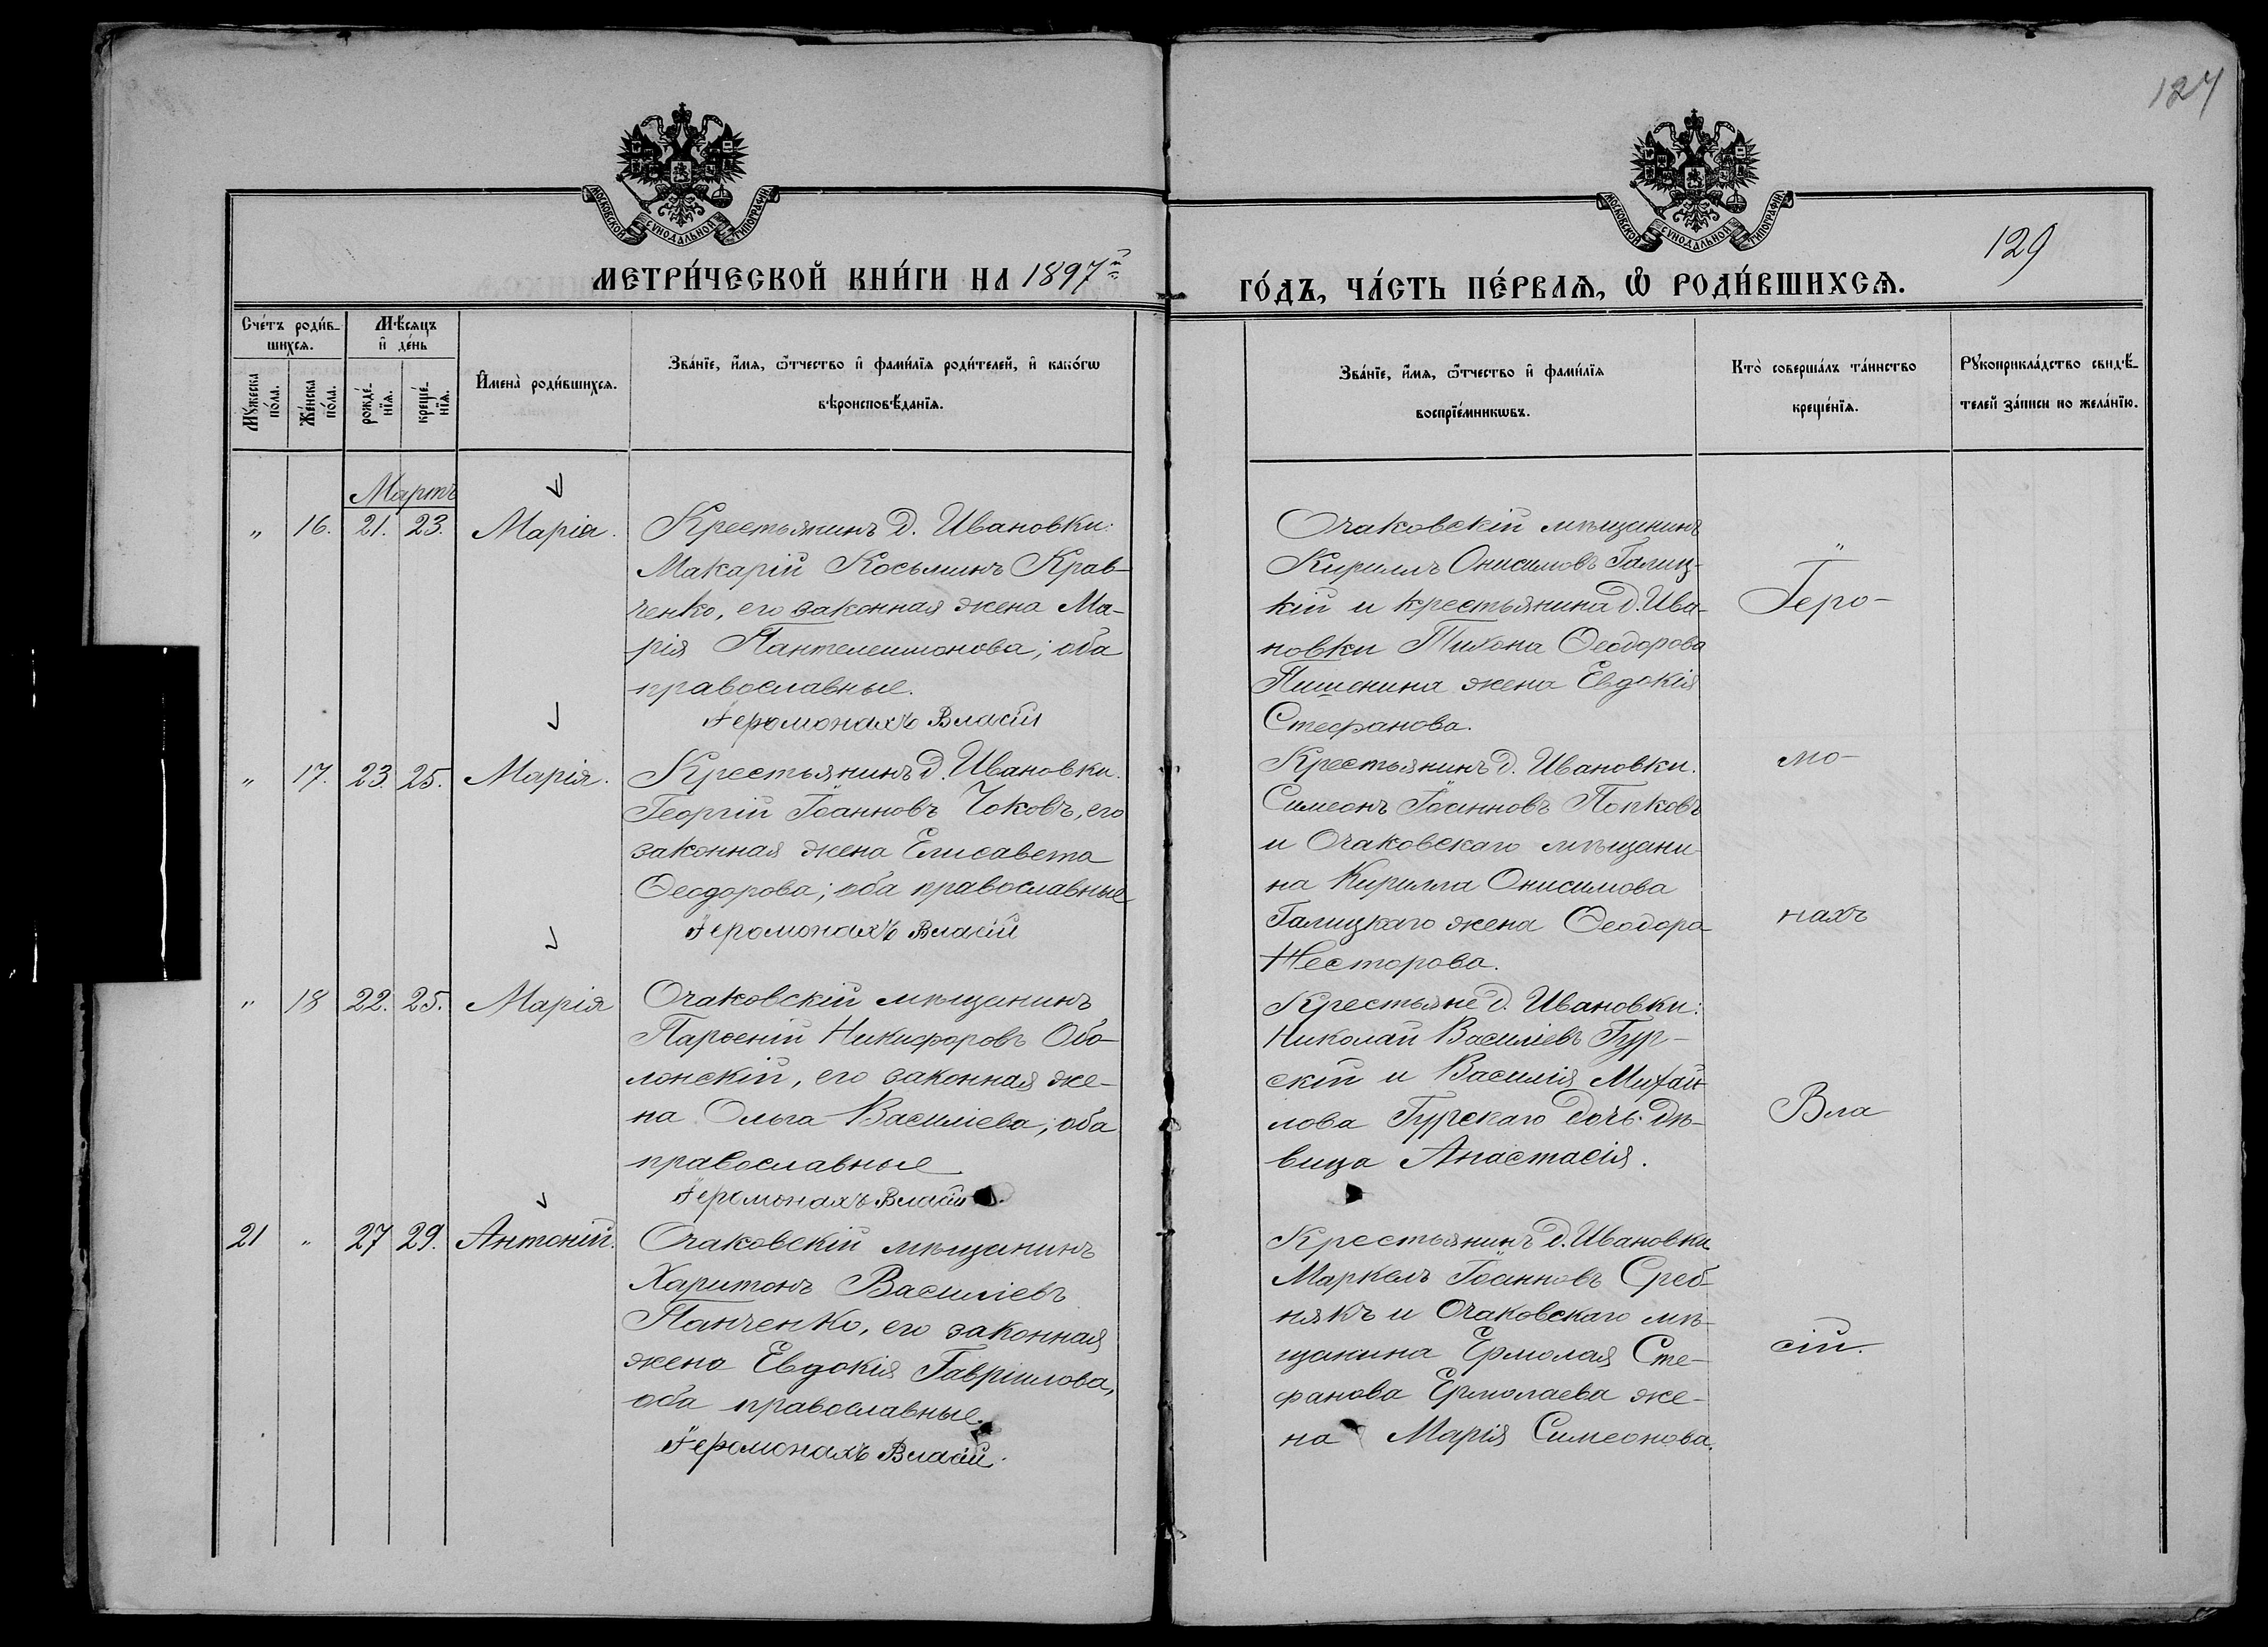 124
МОСКОВСКОЙ СУНОДАЛЬНОЙ ТИПОГРАФІИ
МОСКОВСКОЙ СУНОДАЛЬНОЙ ТИПОГРАФІИ
129
МЕТРИ́ЧЕСКОЙ КНИ́ГИ НА 1897й
ГО́ДЪ, ЧА́СТЬ ПЕ́РВАѦ, Ѡ РОДИ́ВШИХСѦ.
Сче́тъ роди́в-
шихсѧ.
Мѣ́сяцъ
и҆ де́нь
Мꙋжеска по́ла.
Же́нска по́ла.
рожде́-
нїѧ.
креще́-
нїѧ.
И҆мена̀ роди́вшихсѧ.
Зва́нїе, и҆́мѧ, ѻ҆́тчество и҆ фами́лїѧ роди́телей, и҆ како́гѡ
вѣроисповѣ́данїѧ.
Зва́нїе, и҆́мѧ, ѻ҆́тчество и҆ фами́лїѧ
воспрїе́мникѡвъ.
Кто̀ соверша́лъ та́инство
креще́нїѧ.
Рꙋкоприкла́дство свидѣ́-
телей за́писи по жела́нїю.
Мартъ
„ 16. 21. 23. Марія.
Крестьянинъ д. Ивановки:
Макарій Косьминъ Крав-
ченко, его законная жена Ма-
рія Пантелеимонова; оба
православные.
Іеромонахъ Власій
Очаковскій мѣщанинъ
Кириллъ Онисимовъ Галиц-
кій и крестьянина д. Ива-
новки Тихона Ѳеодорова
Пишенина жена Евдокія
Стефанова.
„
Іеро-
„ 17. 23. 25. Марія.
Крестьянинъ д. Ивановки.
Георгій Іоанновъ Чоковъ, его
законная жена Елисавета
Ѳеодорова; оба православные
Іеромонахъ Власій
Крестьянинъ д. Ивановки.
Симеонъ Іоанновъ Попковъ
и Очаковскаго мѣщани-
на Кирилла Онисимова
Галицкаго жена Ѳеодора
Несторова.
мо-
нахъ
„ 18 22. 25. Марія
Очаковскій мѣщанинъ
Парѳеній Никифоровъ Обо-
лонскій, его законная же-
на Ольга Василіева; оба
православные
Іеромонахъ Власій
Крестьяне д. Ивановки:
Николай Василіевъ Гур-
скій и Василія Михай-
лова Гурскаго дочь дѣ-
вица Анастасія.
Вла
21 „ 27 29. Антоній.
Очаковскій мѣщанинъ
Харитонъ Василіевъ
Панченко, его законная
жена Евдокія Гавріилова,
оба православные.
Іеромонахъ Власій.
Крестьянинъ д. Ивановки
Маркелъ Іоанновъ Среб-
някъ и Очаковскаго мѣ-
щанина Ермолая Сте-
фанова Ермолаева же-
на Марія Симеонова.
сій.